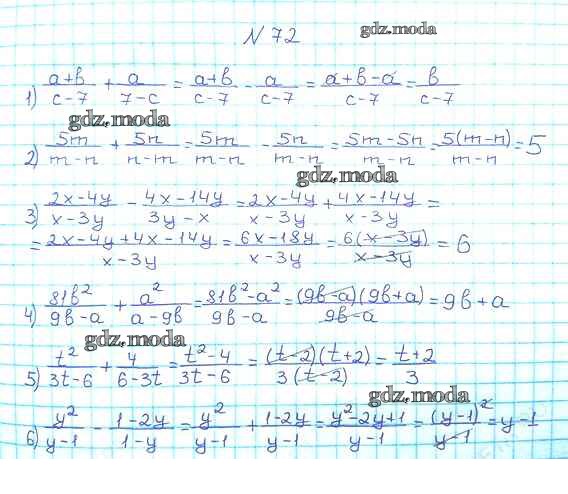 N 72
gdz.moda
1) (a+b)/(c-7) + a/(7-c) = (a+b)/(c-7) - a/(c-7) = (a+b-a)/(c-7) = b/(c-7)
gdz.moda
2) 5m/(m-n) + 5n/(n-m) = 5m/(m-n) - 5n/(m-n) = (5m-5n)/(m-n) = 5(m-n)/(m-n) = 5
gdz.moda
3) (2x-4y)/(x-3y) - (4x-14y)/(3y-x) = (2x-4y)/(x-3y) + (4x-14y)/(x-3y) =
= (2x-4y+4x-14y)/(x-3y) = (6x-18y)/(x-3y) = 6(x-3y)/(x-3y) = 6
4) 81b²/(9b-a) + a²/(a-9b) = (81b²-a²)/(9b-a) = (9b-a)(9b+a)/(9b-a) = 9b+a
gdz.moda
5) t²/(3t-6) + 4/(6-3t) = (t²-4)/(3t-6) = (t-2)(t+2)/3(t-2) = (t+2)/3
gdz.moda
6) y²/(y-1) - (1-2y)/(1-y) = y²/(y-1) + (1-2y)/(y-1) = (y²-2y+1)/(y-1) = (y-1)²/(y-1) = y-1